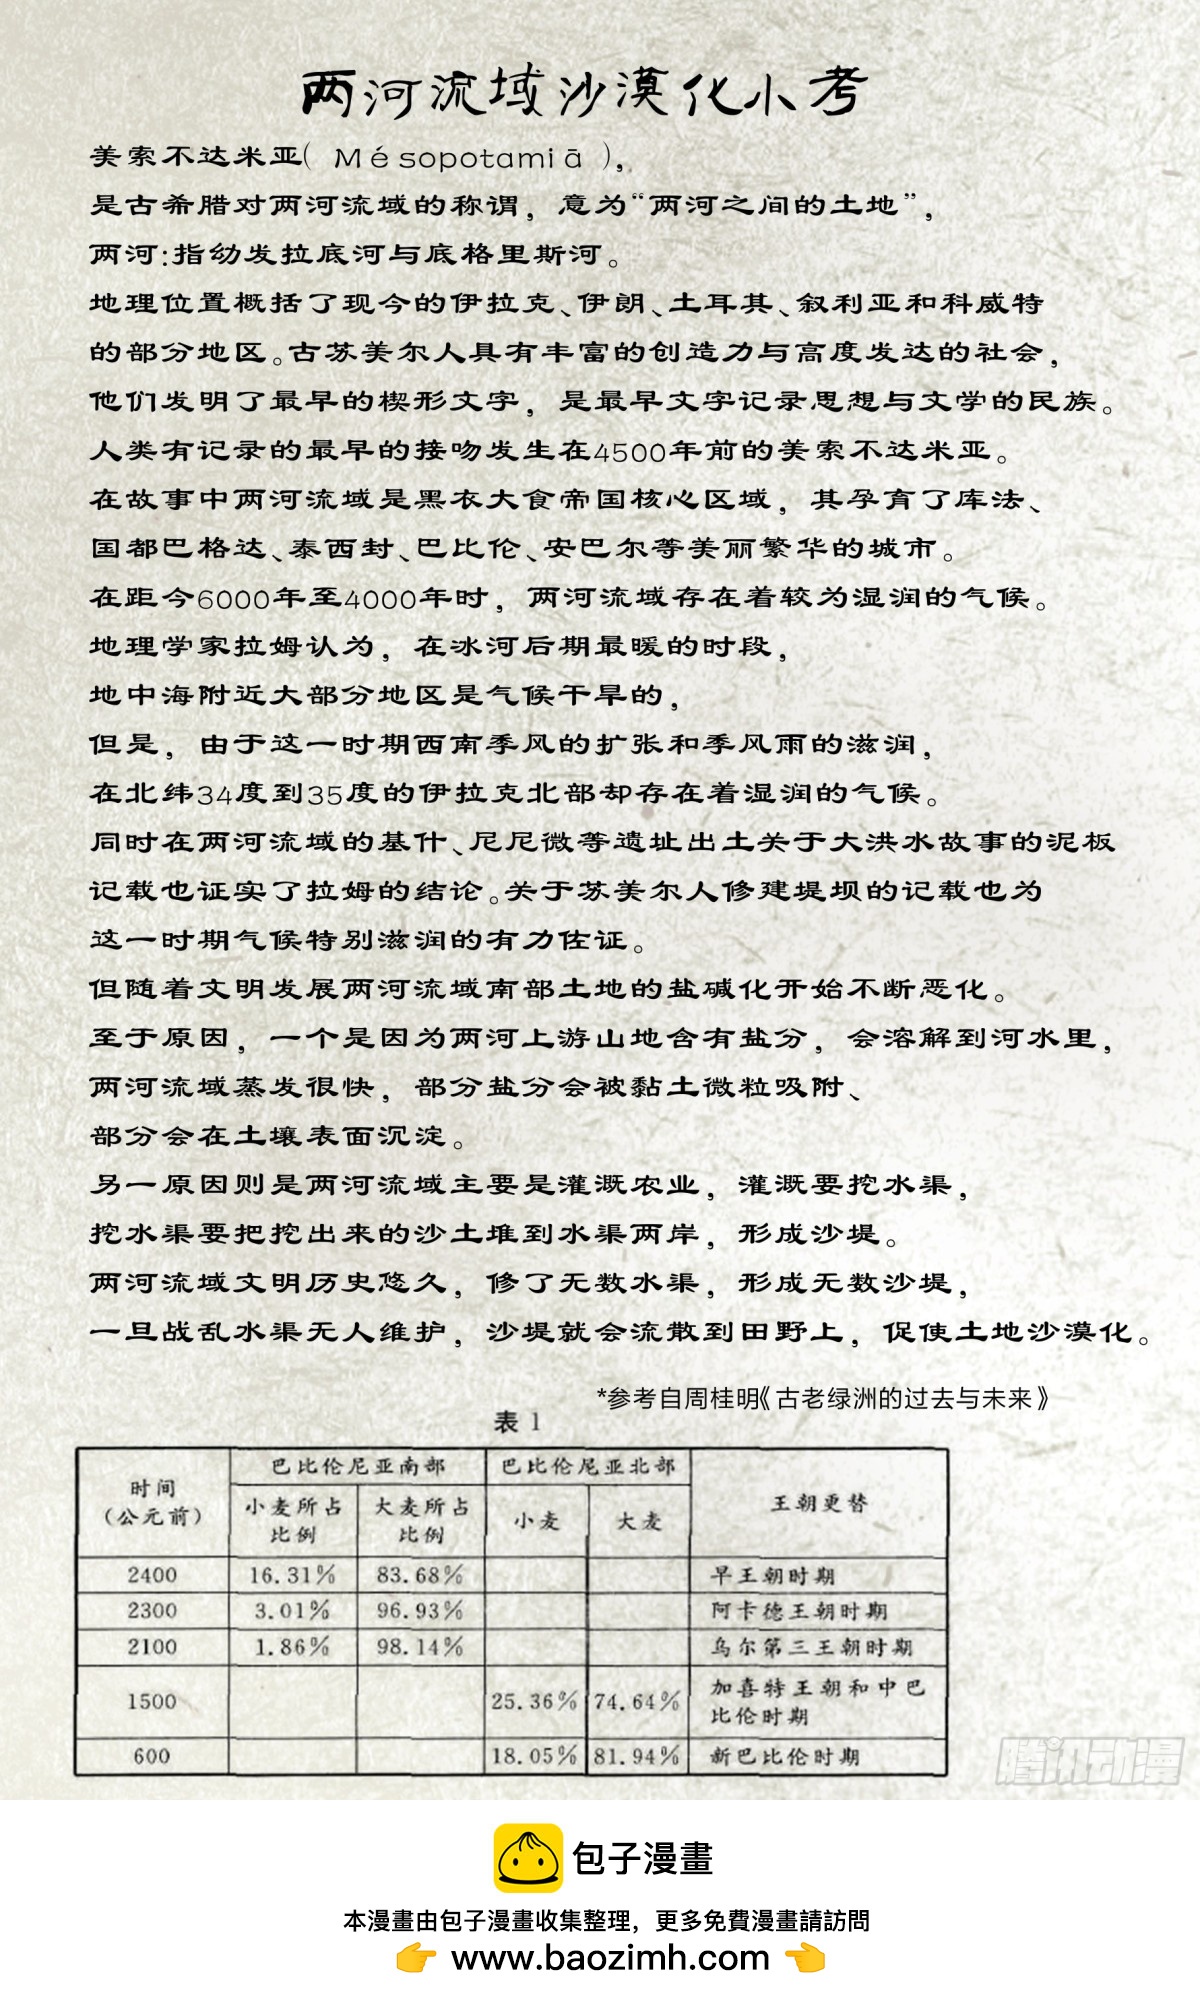 两河流域沙漠化小考
美索不达米亚( Mésopotamiā ),
是古希腊对两河流域的称谓，意为“两河之间的土地”，
两河:指幼发拉底河与底格里斯河。
地理位置概括了现今的伊拉克、伊朗、土耳其、叙利亚和科威特
的部分地区。古苏美尔人具有丰富的创造力与高度发达的社会，
他们发明了最早的楔形文字，是最早文字记录思想与文学的民族。
人类有记录的最早的接吻发生在4500年前的美索不达米亚。
在故事中两河流域是黑衣大食帝国核心区域，其孕育了库法、
国都巴格达、泰西封、巴比伦、安巴尔等美丽繁华的城市。
在距今6000年至4000年时，两河流域存在着较为湿润的气候。
地理学家拉姆认为，在冰河后期最暖的时段，
地中海附近大部分地区是气候干旱的，
但是，由于这一时期西南季风的扩张和季风雨的滋润，
在北纬34度到35度的伊拉克北部却存在着湿润的气候。
同时在两河流域的基什、尼尼微等遗址出土关于大洪水故事的泥板
记载也证实了拉姆的结论。关于苏美尔人修建堤坝的记载也为
这一时期气候特别滋润的有力佐证。
但随着文明发展两河流域南部土地的盐碱化开始不断恶化。
至于原因，一个是因为两河上游山地含有盐分，会溶解到河水里，
两河流域蒸发很快，部分盐分会被黏土微粒吸附、
部分会在土壤表面沉淀。
另一原因则是两河流域主要是灌溉农业，灌溉要挖水渠，
挖水渠要把挖出来的沙土堆到水渠两岸，形成沙堤。
两河流域文明历史悠久，修了无数水渠，形成无数沙堤，
一旦战乱水渠无人维护，沙堤就会流散到田野上，促使土地沙漠化。
*参考自周桂明《古老绿洲的过去与未来》
表 1
时间（公元前） 巴比伦尼亚南部 巴比伦尼亚北部 王朝更替
小麦所占比例 大麦所占比例 小麦 大麦
2400 16.31% 83.68% 早王朝时期
2300 3.01% 96.93% 阿卡德王朝时期
2100 1.86% 98.14% 乌尔第三王朝时期
1500 25.36% 74.64% 加喜特王朝和中巴比伦时期
600 18.05% 81.94% 新巴比伦时期
腾讯动漫
包子漫畫
本漫畫由包子漫畫收集整理，更多免費漫畫請訪問
👉 www.baozimh.com 👈